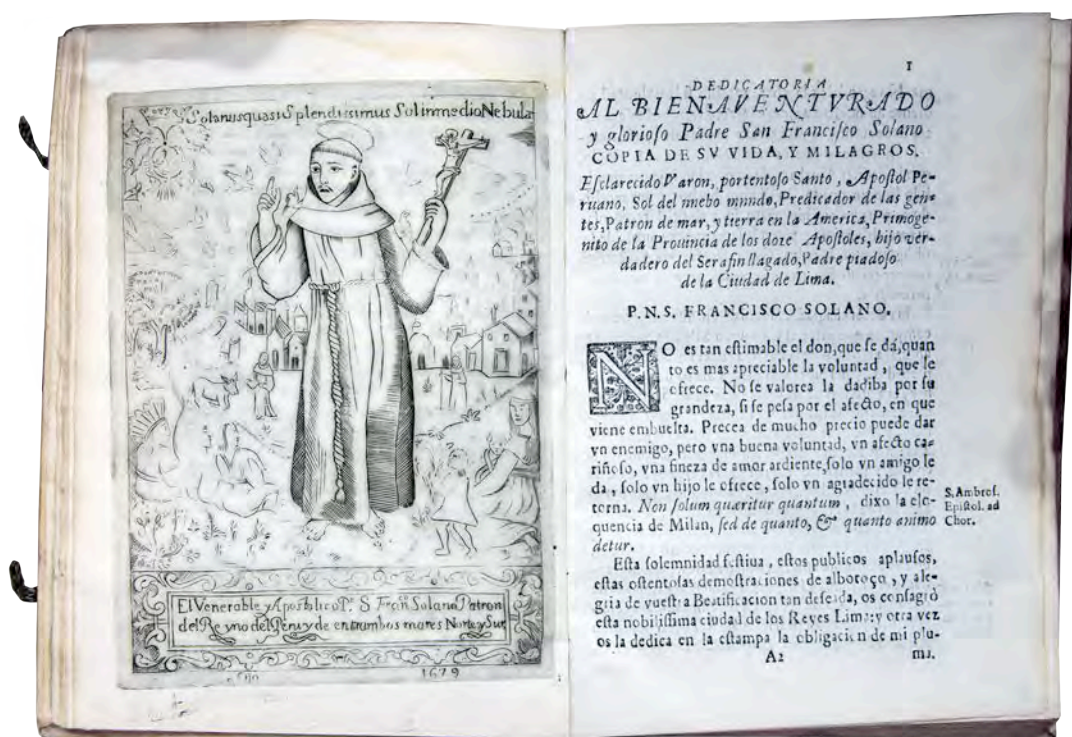 Solanus quasi Splendissimus Sol in medio Nebula
El Venerable y Apostolico Pe. S Francо Solano Patron
del Reyno del Peru y de entrambos mares Norte y Sur
1679
1
DEDICATORIA
AL BIENAVENTVRADO
y glorioſo Padre San Franciſco Solano
COPIA DE SV VIDA, Y MILAGROS.
Eſclarecido Varon, portentoſo Santo, Apoſtol Pe-
ruano, Sol del nuebo mundo, Predicador de las gen-
tes, Patron de mar, y tierra en la America, Primoge-
nito de la Prouincia de los doze Apoſtoles, hijo ver-
dadero del Serafin llagado, Padre piadoſo
de la Ciudad de Lima.
P.N.S. FRANCISCO SOLANO.
NO es tan eſtimable el don, que ſe dá, quan
to es mas apreciable la voluntad, que le
ofrece. No ſe valorea la dadiba por ſu
grandeza, ſi ſe peſa por el afecto, en que
viene embuelta. Precea de mucho precio puede dar
vn enemigo, pero vna buena voluntad, vn afecto ca-
riñoſo, vna fineza de amor ardiente, ſolo vn amigo le
da, ſolo vn hijo le ofrece, ſolo vn agradecido le re-
torna. Non ſolum quæritur quantum, dixo la elo-
quencia de Milan, ſed de quanto, & quanto animo
detur.
S. Ambroſ.
Epiſtol. ad
Chor.
Eſta ſolemnidad feſtiua, eſtos publicos aplauſos,
eſtas oſtentoſas demoſtraciones de alboroço, y ale-
gria de vueſtra Beatificacion tan deſeada, os conſagrò
eſta nobiliſſima ciudad de los Reyes Lima: y otra vez
os la dedica en la eſtampa la obligacion de mi plu-
A2
ma.